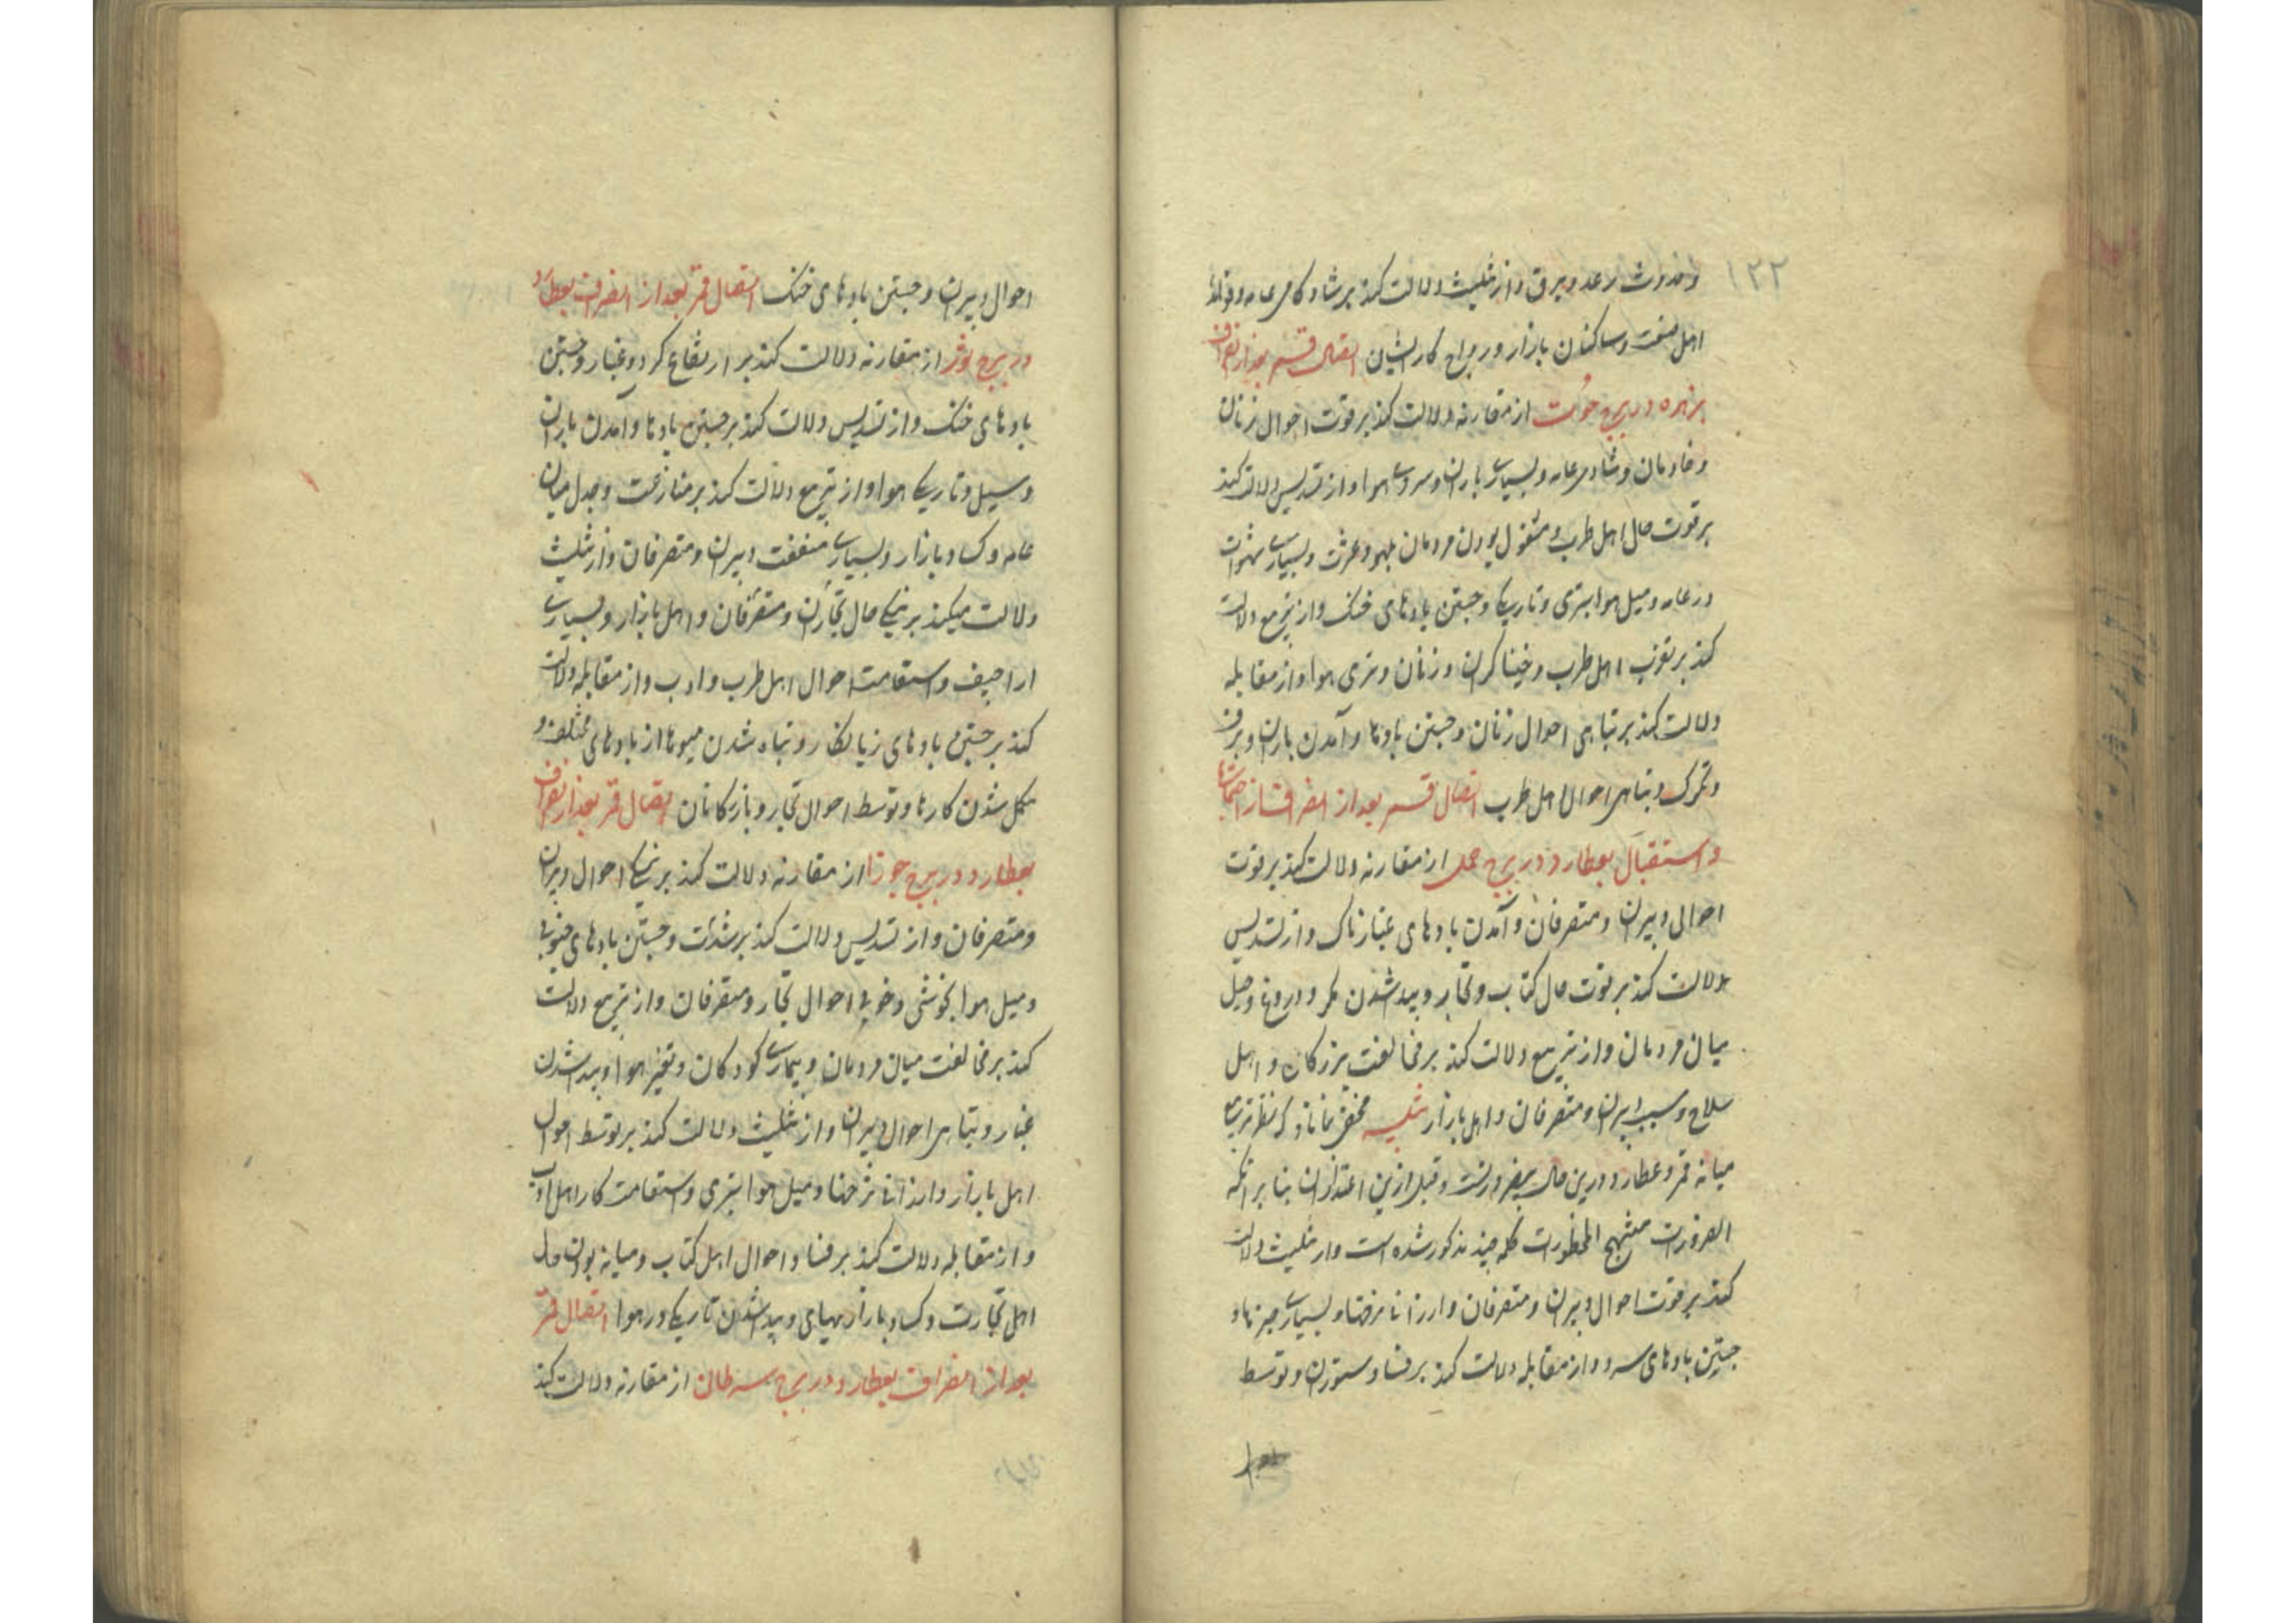 ۱۲۲
و حدوث رعد و برق و از تثلیث دلالت کند بر شادکامی عامه و فواید
اهل صنعت و ساکنان بازار و رواج کار ایشان اتصال قمر بعد از انصراف
بزهره در برج حوت از مقارنه دلالت کند بر قوت احوال زنان
و خادمان و شادی عامه و بسیاری باران و سردی هوا و از تسدیس دلالت کند
بر قوت حال اهل طرب و مشغول بودن مردمان بلهو و عشرت و بسیاری شهوات
در عامه و میل هوا بتری و تاریکی و جستن بادهای خنک و از تربیع دلالت
کند بر اهل طرب و خنیاکران و زنان و تری هوا و از مقابله
دلالت کند بر تباهی احوال زنان و جستن بادها و آمدن باران و برف
و تکرک و تباهی احوال اهل طرب اتصال قمر بعد از انصراف از اجتماع
و استقبال بعطارد در برج حمل از مقارنه دلالت کند بر قوت
احوال دبیران و متصرفان و آمدن بادهای غبارناک و از تسدیس
دلالت کند بر قوت حال کتاب و تجار و پیدا شدن مکر و دروغ و حیل
میان مردمان و از تربیع دلالت کند بر مخالفت بزرکان و اهل
سلاح و دبیران و متصرفان و اهل بازار تنبیه مخفی نماند که نظر تربیع
میانه قمر و عطارد درین حال و قبل ازین اعتذار آن بنا بر آنکه
الضرورات تبیح المحظورات کله چند مذکور شده است و از تثلیث دلالت
کند بر قوت احوال دبیران و متصرفان و ارزانی نرخها و بسیاری خیرها و
جستن بادهای سرد و از مقابله دلالت کند بر فساد ستوران و توسط
احوال دبیران و جستن بادهای خنک اتصال قمر بعد از انصراف بعطارد
در برج ثور از مقارنه دلالت کند بر ارتفاع کرد و غبار و جستن
بادهای خنک و از تسدیس دلالت کند بر جستن بادها و آمدن باران
و سیل و تاریکی هوا و از تربیع دلالت کند بر منازعت و جدل میان
عامه و کساد بازار و بسیاری منفعت دبیران و متصرفان و از تثلیث
دلالت میکند بر نیکی حال تجاران و متصرفان و اهل بازار و بسیاری
اراجیف و استقامت احوال اهل طرب و ادب و از مقابله دلالت
کند بر جستن بادهای زیانکار و تباه شدن میوها از بادهای مختلف و
مشکل شدن کارها و توسط احوال تجار و بازرکانان اتصال قمر بعد از انصراف
بعطارد در برج جوزا از مقارنه دلالت کند بر نیکی احوال دبیران
و متصرفان و از تسدیس دلالت کند بر شدت و جستن بادهای جنوبی
و میل هوا بخوشی و خوبی احوال تجار و متصرفان و از تربیع دلالت
کند بر مخالفت میان مردمان و بیماری کودکان و تغیر هوا و پیدا شدن
غبار و تباهی احوال دبیران و از تثلیث دلالت کند بر توسط احوال
اهل بازار و ارزانی نرخها و میل هوا بتری و استقامت کار اهل ادب
و از مقابله دلالت کند بر فساد احوال اهل کتاب و میانه بودن حال
اهل تجارت و کساد بازار و پیدا شدن تاریکی در هوا اتصال قمر
بعد از انصراف بعطارد در برج سرطان از مقارنه دلالت کند